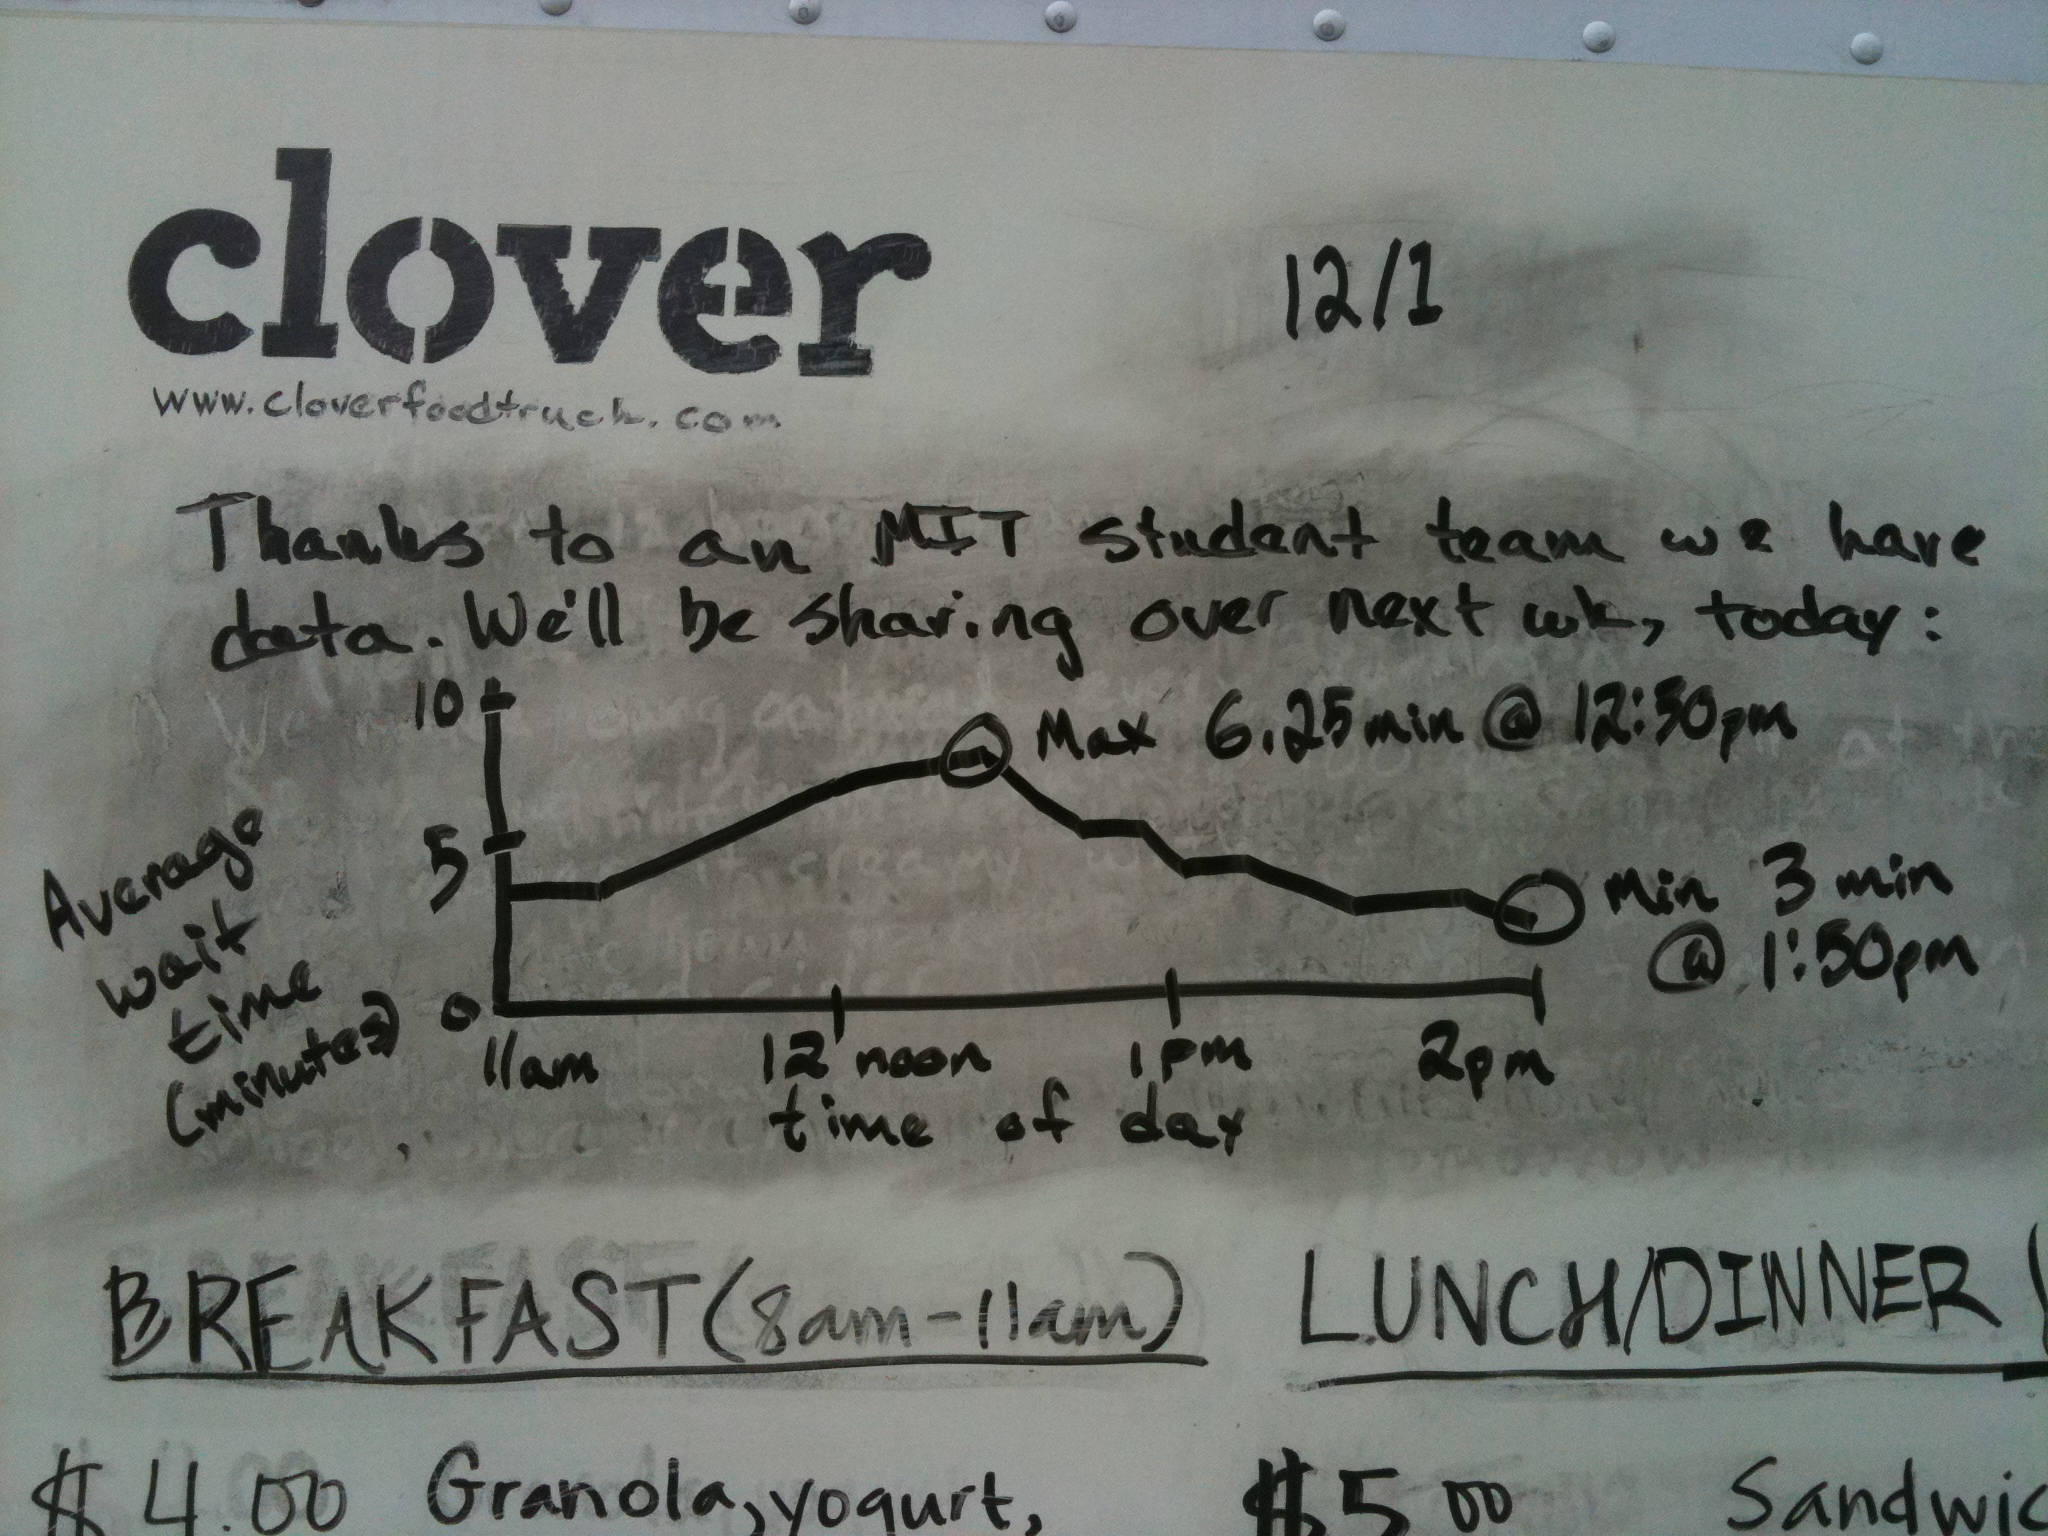 clover
12/1
www.cloverfoodtruck.com
Thanks to an MIT student team we have
data. We'll be sharing over next wk, today:
10
Max 6.25min @ 12:30pm
5
Average
wait
time
(minutes)
Min 3 min
@ 1:50pm
0
11am
12 noon
1pm
2pm
time of day
BREAKFAST (8am-11am)
LUNCH/DINNER (
$4.00 Granola, yogurt,
$5.00 Sandwic